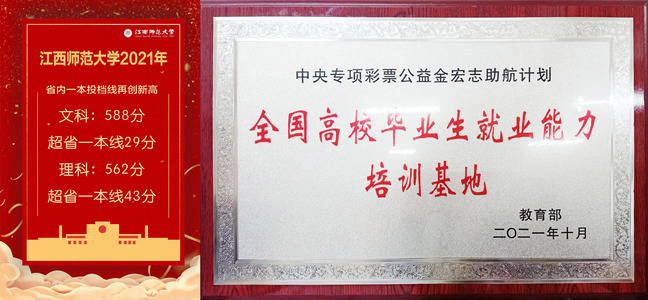 江西师范大学
江西师范大学2021年
省内一本投档线再创新高
文科：588分
超省一本线29分
理科：562分
超省一本线43分
中央专项彩票公益金宏志助航计划
全国高校毕业生就业能力
培训基地
教育部
二〇二一年十月